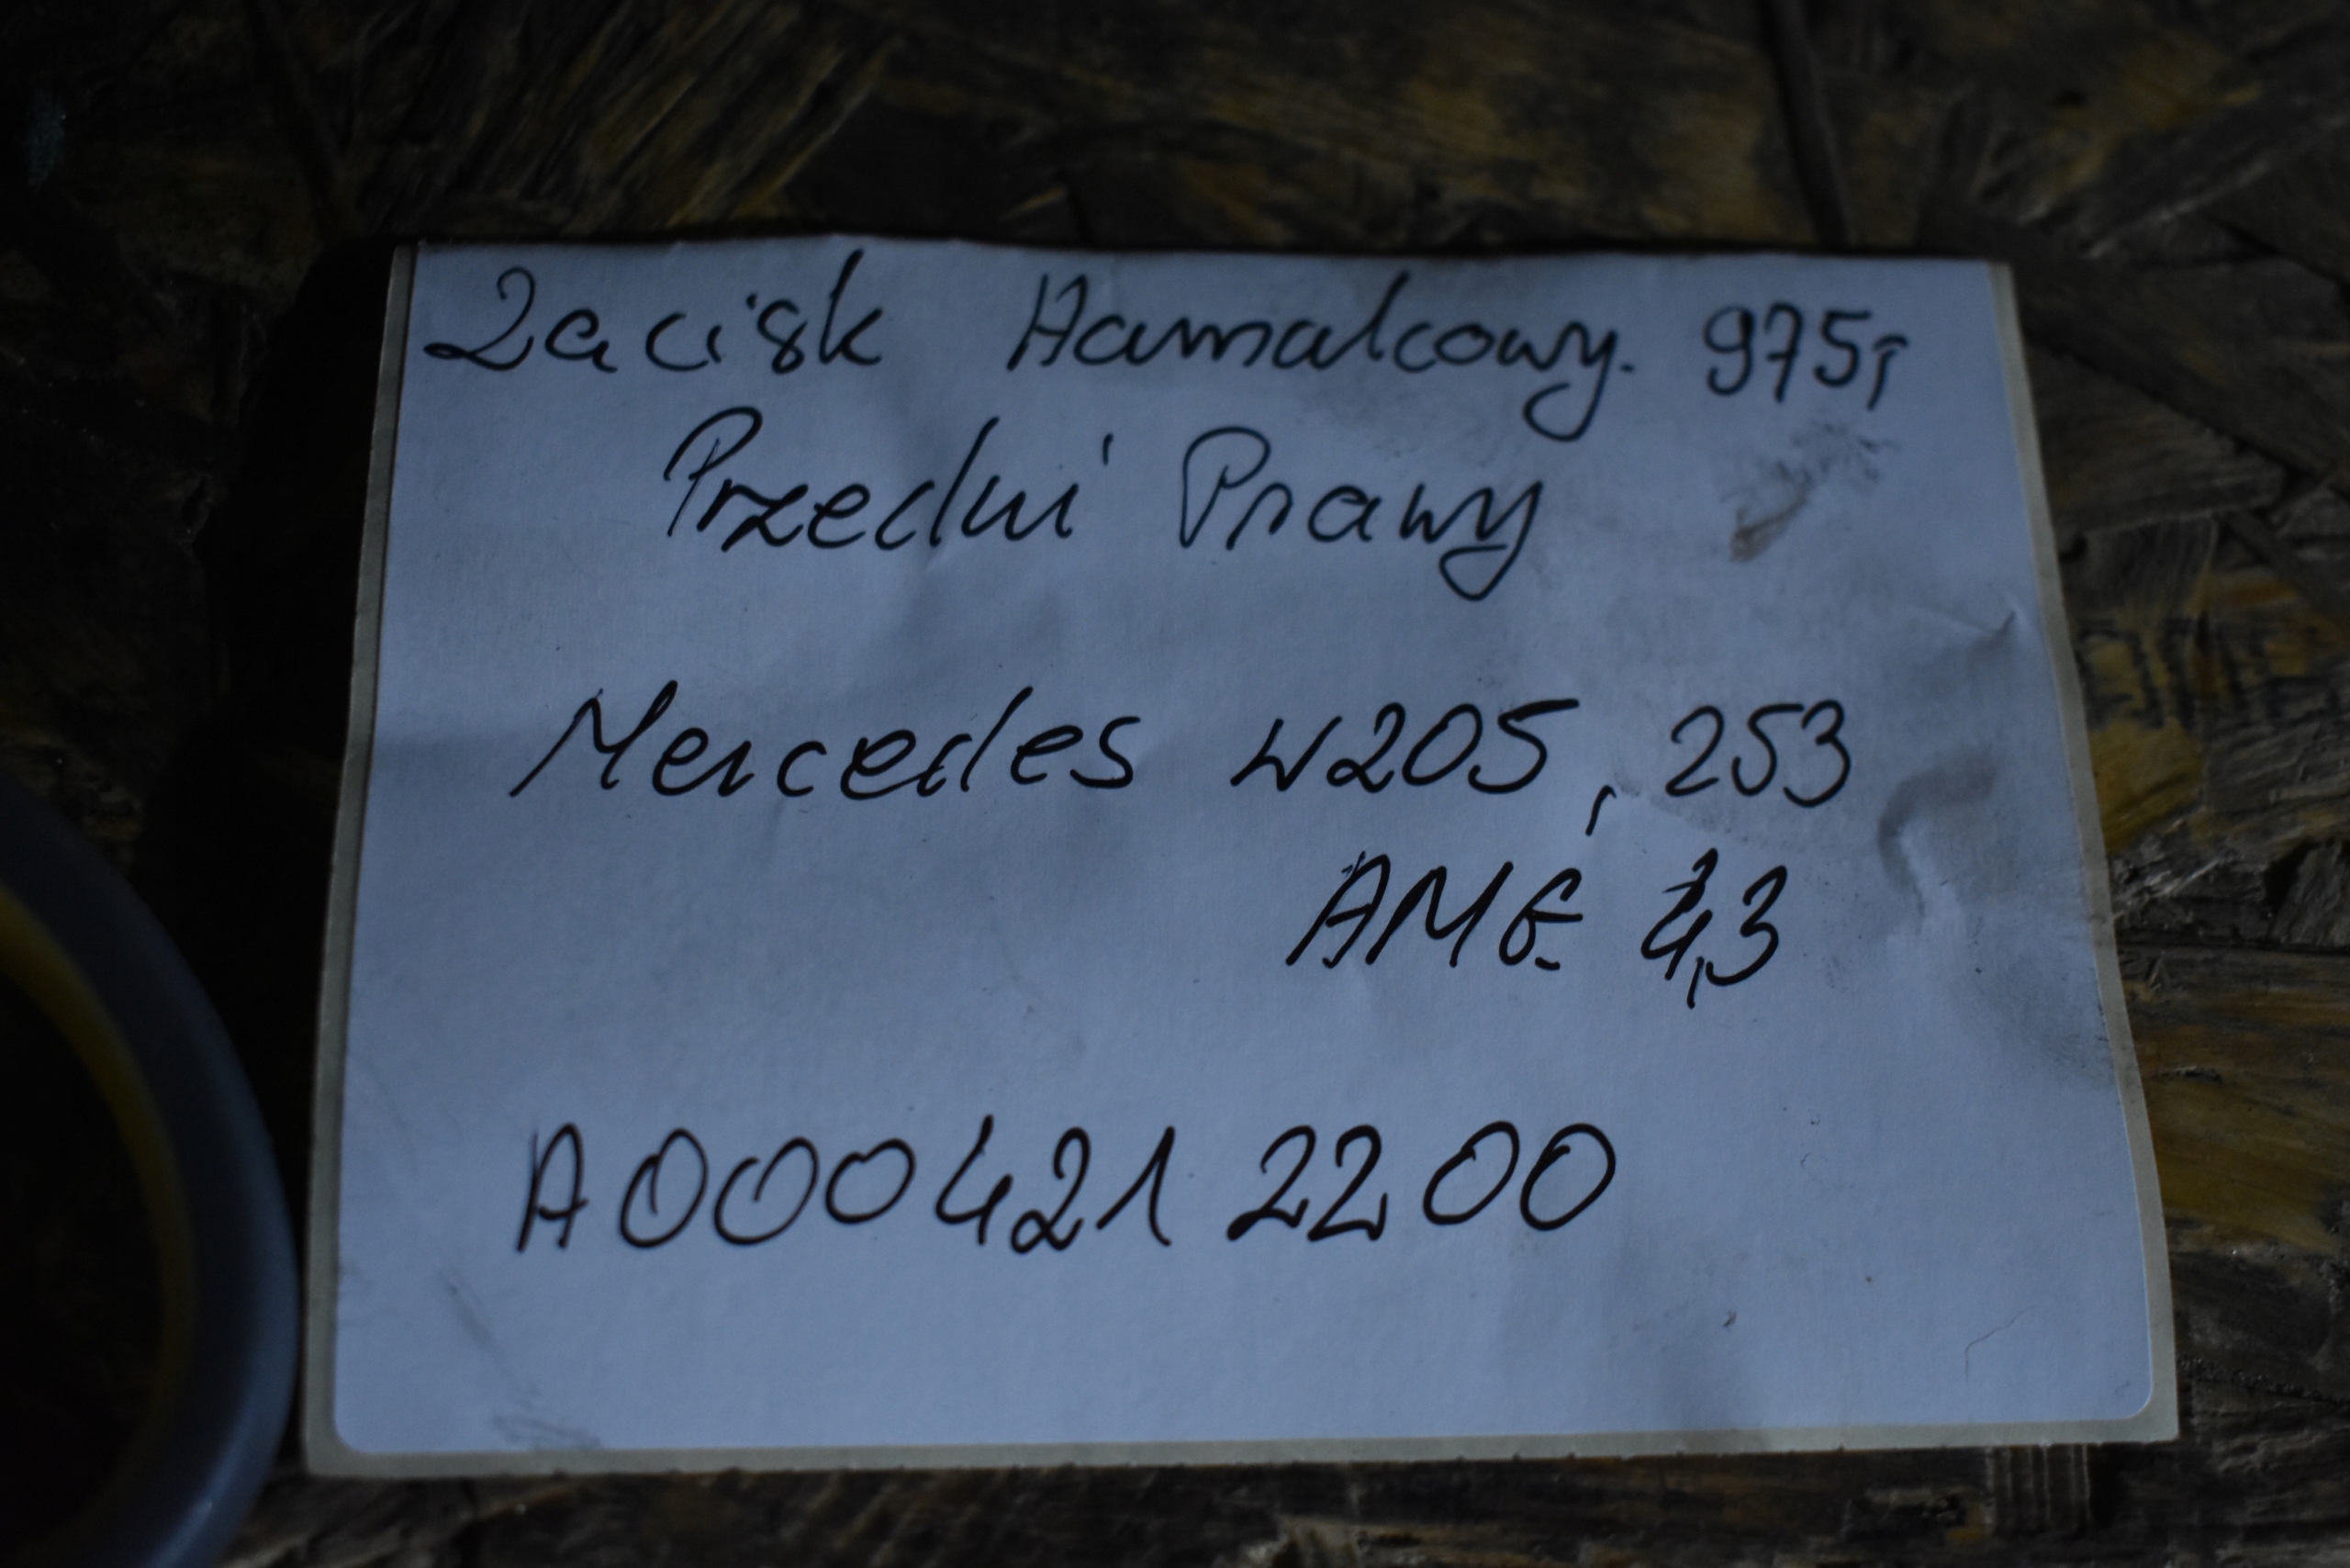 Zacisk Hamulcowy. 975,-
Przedni Prawy
Mercedes W205, 253
AMG 4,3
A000421 2200